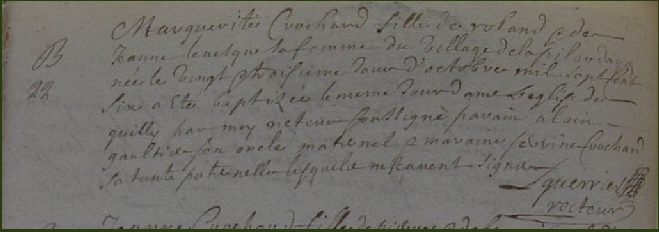 Marguerite Crochard fille de roland & de
B Jeanne sa femme du village de la
née le vingt & troisieme Jour d'octobre mil sept cent
22 six a esté baptizée le meme Jour dans L'eglise de
quilly par moy recteur soussigné parain alain
gaultier son oncle maternel & maraine perrine Crochard
sa tante paternelle lesquels ne scavent signer
Lguerrier
recteur
Jeanne Crochard fille de